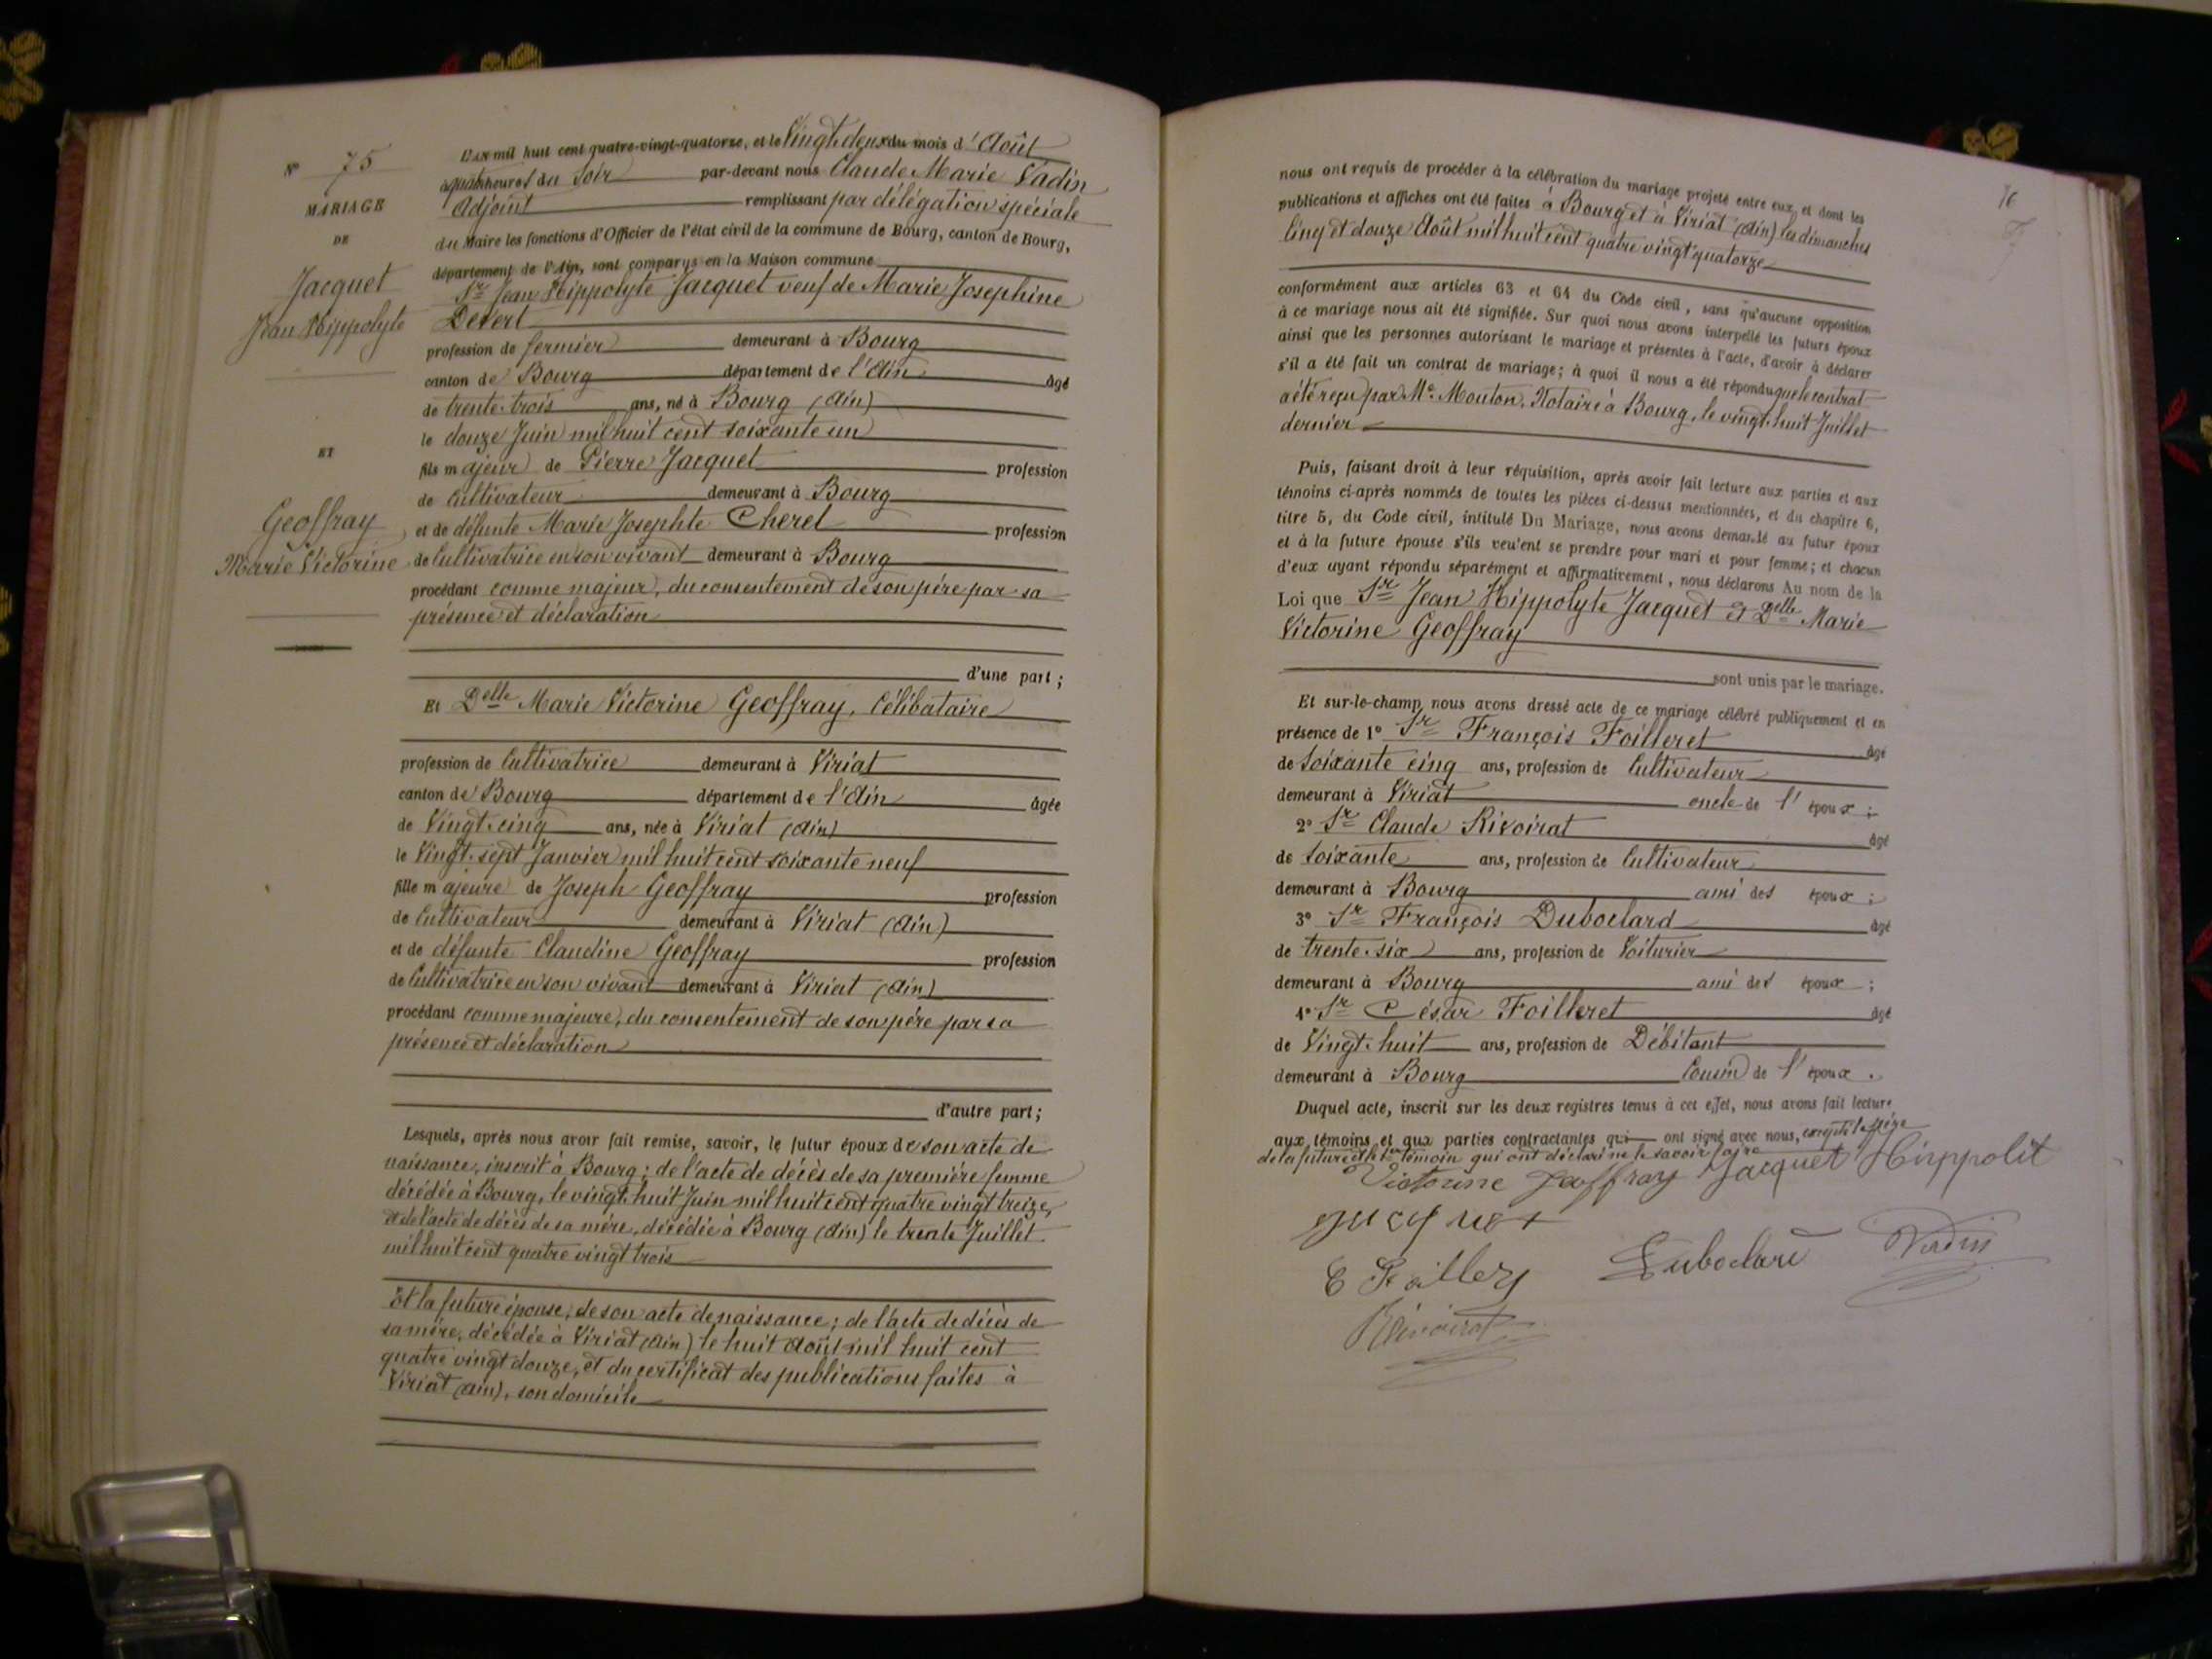 N° 75
MARIAGE
DE
Jacquet
Jean Hippolyte
ET
Geoffray
Marie Victorine
L'AN mil huit cent quatre-vingt-quatorze, et le Vingt-deux du mois d'Août
à quatre heures du Soir par-devant nous Claude Marie Vadin
Adjoint remplissant par délégation spéciale
du Maire les fonctions d'Officier de l'état civil de la commune de Bourg, canton de Bourg,
département de l'Ain, sont comparus en la Maison commune
Sr Jean Hippolyte Jacquet veuf de Marie Josephine
Devert
profession de fermier demeurant à Bourg
canton de Bourg département de l'Ain âgé
de trente-trois ans, né à Bourg (Ain)
le douze Juin mil huit cent soixante un
fils majeur de Pierre Jacquet profession
de Cultivateur demeurant à Bourg
et de défunte Marie Josephte Cherel profession
de Cultivatrice en son vivant demeurant à Bourg
procédant comme majeur, du consentement de son père par sa
présence et déclaration
d'une part ;
Et Delle Marie Victorine Geoffray, Célibataire
profession de Cultivatrice demeurant à Viriat
canton de Bourg département de l'Ain âgée
de Vingt-cinq ans, née à Viriat (Ain)
le Vingt-sept Janvier mil huit cent soixante neuf
fille majeure de Joseph Geoffray profession
de Cultivateur demeurant à Viriat (Ain)
et de défunte Claudine Geoffray profession
de Cultivatrice en son vivant demeurant à Viriat (Ain)
procédant comme majeure, du consentement de son père par sa
présence et déclaration
d'autre part ;
Lesquels, après nous avoir fait remise, savoir, le futur époux de son acte de
naissance, inscrit à Bourg ; de l'acte de décès de sa première femme
décédée à Bourg, le vingt-huit Juin mil huit cent quatre vingt treize,
et de l'acte de décès de sa mère, décédée à Bourg (Ain) le trente Juillet
mil huit cent quatre vingt trois
Et la future épouse, de son acte de naissance ; de l'acte de décès de
sa mère, décédée à Viriat (Ain) le huit Août mil huit cent
quatre vingt douze, et du certificat des publications faites à
Viriat (Ain), son domicile
76
nous ont requis de procéder à la célébration du mariage projeté entre eux, et dont les
publications et affiches ont été faites à Bourg et à Viriat (Ain) les dimanches
Cinq et douze Août mil huit cent quatre vingt quatorze
conformément aux articles 63 et 64 du Code civil, sans qu'aucune opposition
à ce mariage nous ait été signifiée. Sur quoi nous avons interpellé les futurs époux
ainsi que les personnes autorisant le mariage et présentes à l'acte, d'avoir à déclarer
s'il a été fait un contrat de mariage ; à quoi il nous a été répondu que le contrat
a été reçu par Me Mouton, Notaire à Bourg, le vingt-huit Juillet
dernier
Puis, faisant droit à leur réquisition, après avoir fait lecture aux parties et aux
témoins ci-après nommés de toutes les pièces ci-dessus mentionnées, et du chapitre 6,
titre 5, du Code civil, intitulé Du Mariage, nous avons demandé au futur époux
et à la future épouse s'ils veulent se prendre pour mari et pour femme ; et chacun
d'eux ayant répondu séparément et affirmativement, nous déclarons Au nom de la
Loi que Sr Jean Hippolyte Jacquet et Delle Marie
Victorine Geoffray
sont unis par le mariage.
Et sur-le-champ, nous avons dressé acte de ce mariage célébré publiquement et en
présence de 1° Sr François Foilleret âgé
de Soixante cinq ans, profession de Cultivateur
demeurant à Viriat oncle de l'époux ;
2° Sr Claude Rivoirat âgé
de Soixante ans, profession de Cultivateur
demeurant à Bourg ami des époux ;
3° Sr François Duboclard âgé
de trente-six ans, profession de Voiturier
demeurant à Bourg ami des époux ;
4° Sr César Foilleret âgé
de Vingt-huit ans, profession de Débitant
demeurant à Bourg Cousin de l'époux.
Duquel acte, inscrit sur les deux registres tenus à cet effet, nous avons fait lecture
aux témoins et aux parties contractantes qui ont signé avec nous, excepté le père
de la future et le 1er témoin qui ont déclaré ne le savoir faire
Victorine Geoffray Jacquet Hippolit
jacquet
Duboclard Vadin
Rivoirat